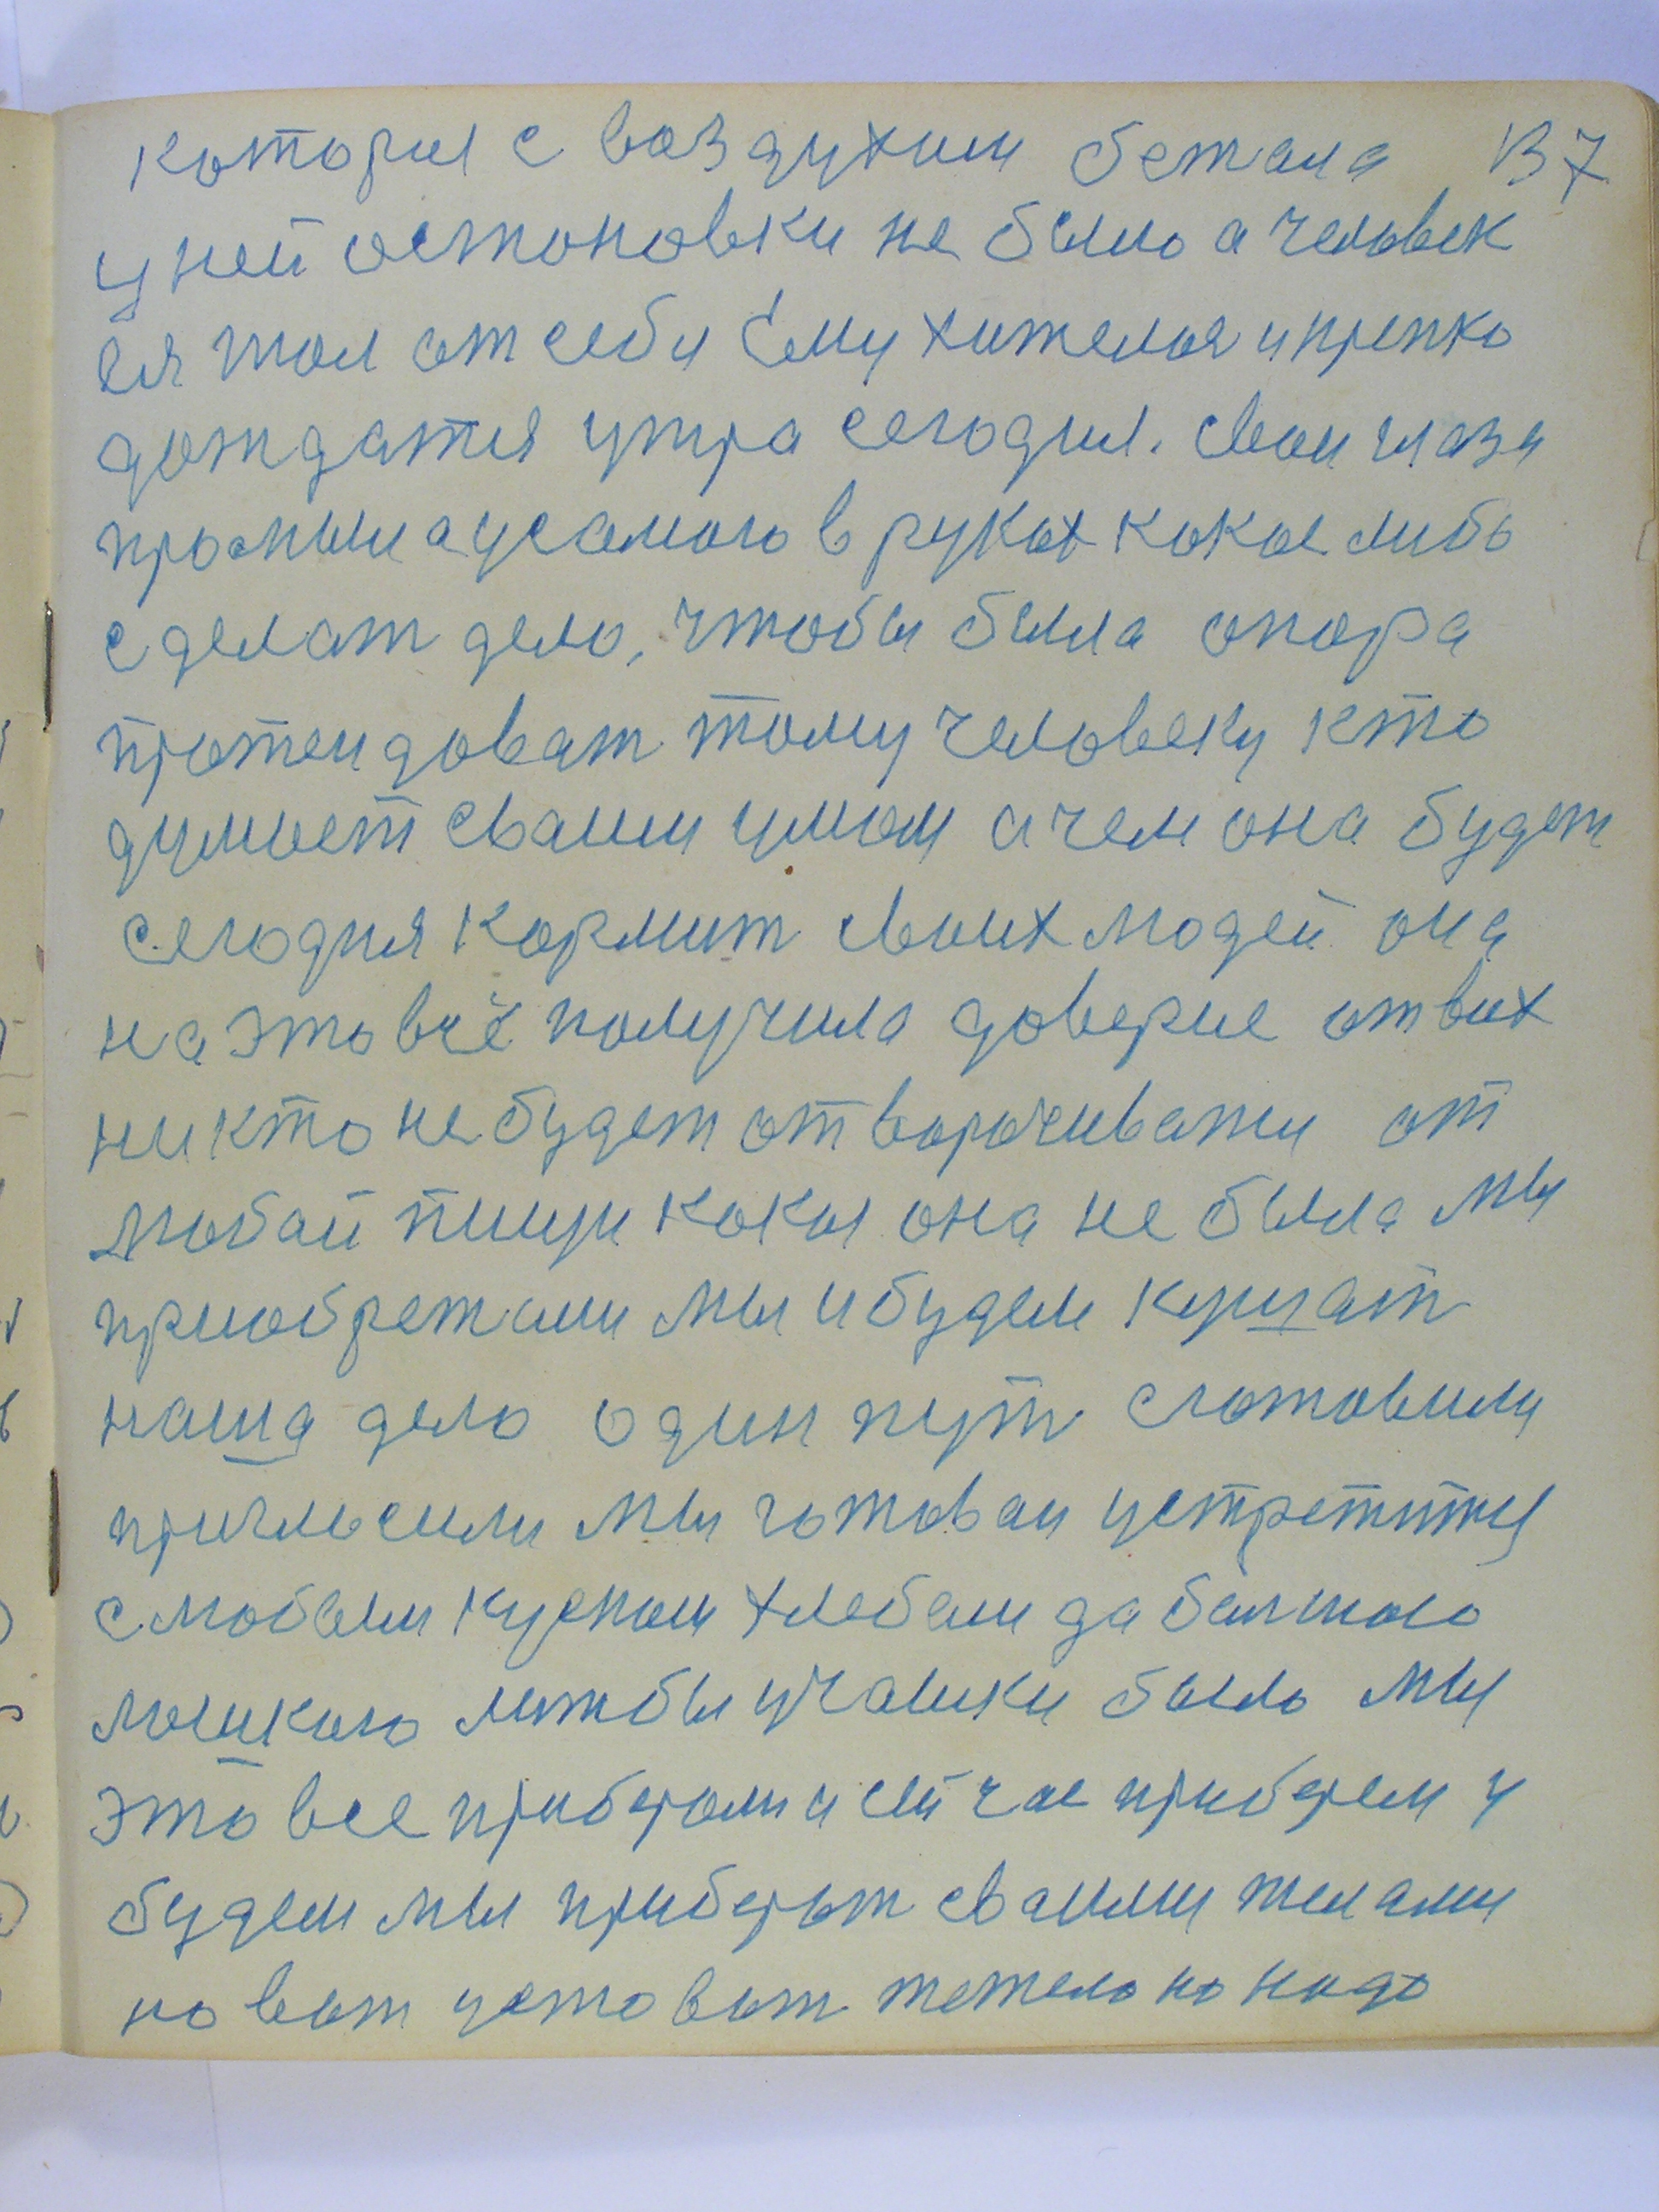 которыя с воздухим бежала 137
у ней остоновки не было а человек
ея жал от себя ему тижелоя и крепко
дождатся утра сегодня. свои глаза
промыли а у самого в руках какое либо
сделат дело, чтобы была опора
протендоват тому человеку кто
думает сваим умом а чем она будет
сегодня кормит своих людей она
на это всё получила доверие от вих
никто не будет отворочиватся от
любой пищи какоя она не была мы
приобретали мы и будем кушат
наша дело один пут сготовили
пригласили мы готовы устретится
с любым куском хлебом да болшого
ложкою лижбы у чашки было мы
это все прибероли и сейчас приберем и
будем мы приберат сваими телами
но вот устоват тежело но надо